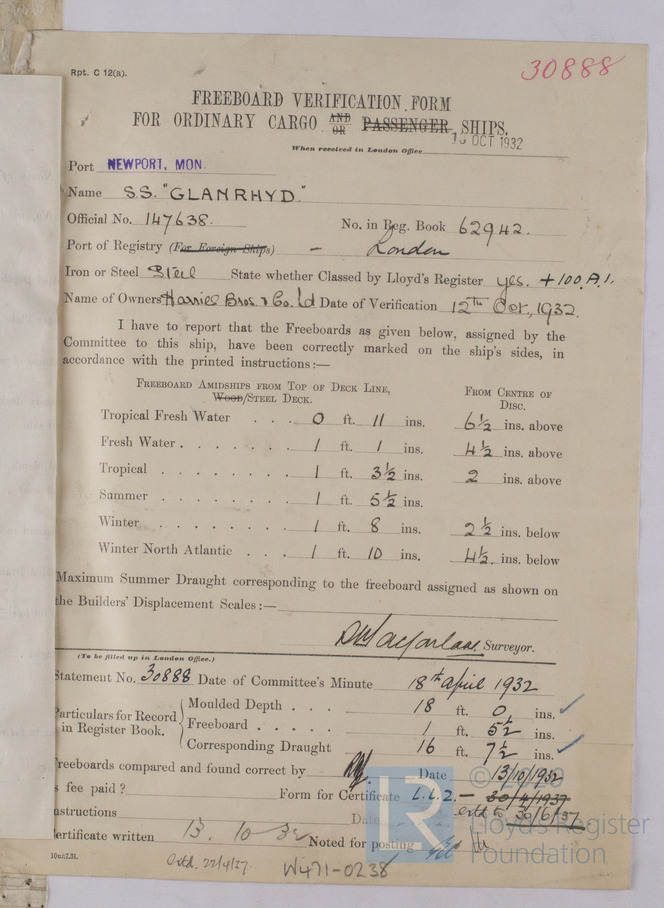 Rpt. C 12(a).
30888
FREEBOARD VERIFICATION FORM
FOR ORDINARY CARGO AND OR PASSENGER SHIPS.
When received in London Office 13 OCT 1932
Port NEWPORT, MON.
Name S.S. "GLANRHYD."
Official No. 147638. No. in Reg. Book 62942.
Port of Registry (For Foreign Ships) - London
Iron or Steel Steel State whether Classed by Lloyd's Register yes. +100.A.1.
Name of Owners Harries Bros. & Co. Ld Date of Verification 12th Oct, 1932.
I have to report that the Freeboards as given below, assigned by the
Committee to this ship, have been correctly marked on the ship's sides, in
accordance with the printed instructions:—
FREEBOARD AMIDSHIPS FROM TOP OF DECK LINE, WOOD/STEEL DECK.
FROM CENTRE OF DISC.
Tropical Fresh Water . . . 0 ft. 11 ins. 6½ ins. above
Fresh Water . . . . . . . 1 ft. 1 ins. 4½ ins. above
Tropical . . . . . . . . 1 ft. 3½ ins. 2 ins. above
Summer . . . . . . . . 1 ft. 5½ ins.
Winter . . . . . . . . 1 ft. 8 ins. 2½ ins. below
Winter North Atlantic . . . 1 ft. 10 ins. 4½ ins. below
Maximum Summer Draught corresponding to the freeboard assigned as shown on
the Builders' Displacement Scales:—
Macfarlane Surveyor.
(To be filled up in London Office.)
Statement No. 30888 Date of Committee's Minute 18th April 1932
Particulars for Record in Register Book.
Moulded Depth . . . 18 ft. 0 ins. ✓
Freeboard . . . . . 1 ft. 5½ ins.
Corresponding Draught 16 ft. 7½ ins. ✓
Freeboards compared and found correct by Date 13/10/1932
s fee paid? Form for Certificate L.L.2. — 30/4/1937
nstructions Date extd to 30/6/37
ertificate written 13. 10 32 Noted for posting
10m.7.31.
Extd. 22/4/37
W471-0238
© 2020
Lloyd's Register
Foundation